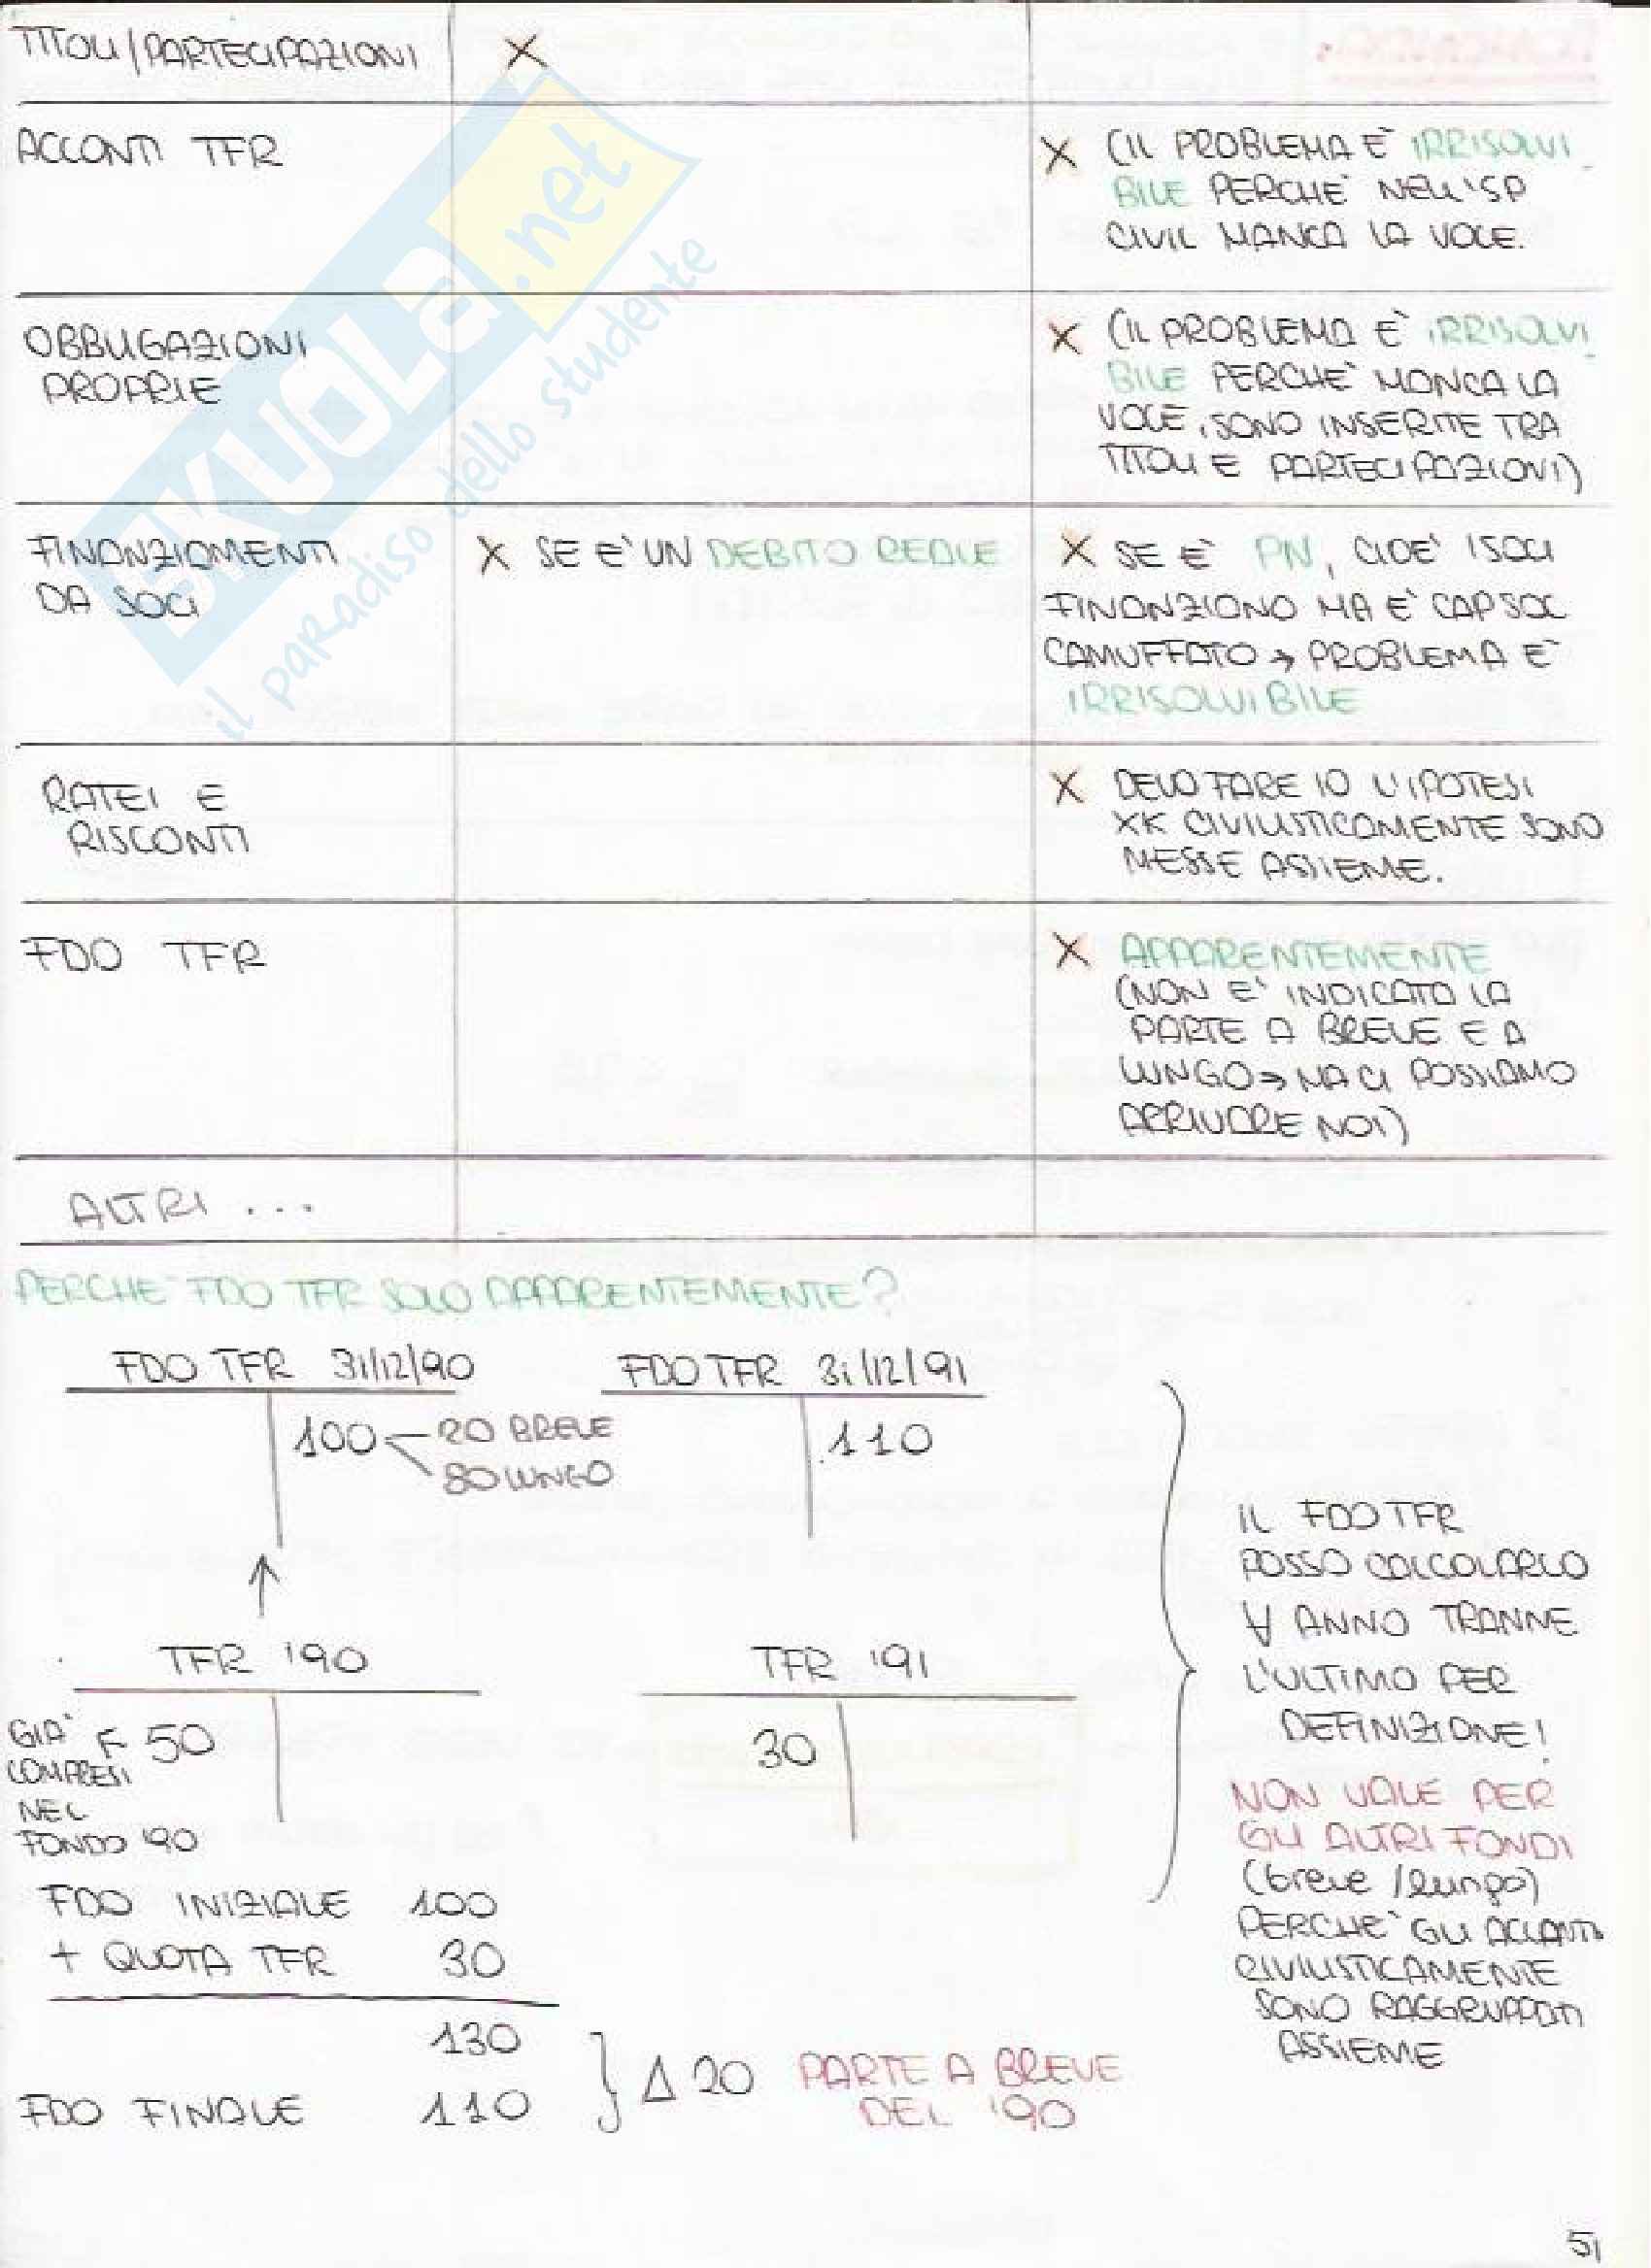 TITOLI/PARTECIPAZIONI X
ACCONTI TFR X (IL PROBLEMA E' IRRISOLVI
BILE PERCHE' NELL'SP
CIVIL MANCA LA VOCE.
OBBLIGAZIONI X (IL PROBLEMA E' IRRISOLVI
PROPRIE BILE PERCHE' MANCA LA
VOCE, SONO INSERITE TRA
TITOLI E PARTECIPAZIONI)
FINANZIAMENTI X SE E' UN DEBITO REALE X SE E' PN, CIOE' I SOCI
DA SOCI FINANZIANO MA E' CAP SOC
CAMUFFATO → PROBLEMA E'
IRRISOLVIBILE
RATEI E X DEVO FARE IO L'IPOTESI
RISCONTI XK CIVILISTICAMENTE SONO
MESSE ASSIEME.
FDO TFR X APPARENTEMENTE
(NON E' INDICATO LA
PARTE A BREVE E A
LUNGO → MA CI POSSIAMO
ARRIVARE NOI)
ALTRI ...
PERCHE' FDO TFR SOLO APPARENTEMENTE?
FDO TFR 31/12/90 FDO TFR 31/12/91
100 20 BREVE 110
80 LUNGO
↑
TFR '90 TFR '91
GIA' 50 30
COMPRESI
NEL
FONDO '90
IL FDO TFR
POSSO CALCOLARLO
∀ ANNO TRANNE
L'ULTIMO PER
DEFINIZIONE!
NON VALE PER
GLI ALTRI FONDI
(breve /lungo)
PERCHE' GLI ACCANTI
CIVILISTICAMENTE
SONO RAGGRUPPATI
ASSIEME
FDO INIZIALE 100
+ QUOTA TFR 30
130
FDO FINALE 110 } Δ 20 PARTE A BREVE
DEL '90
51
SKUOLA.net
il paradiso dello studente